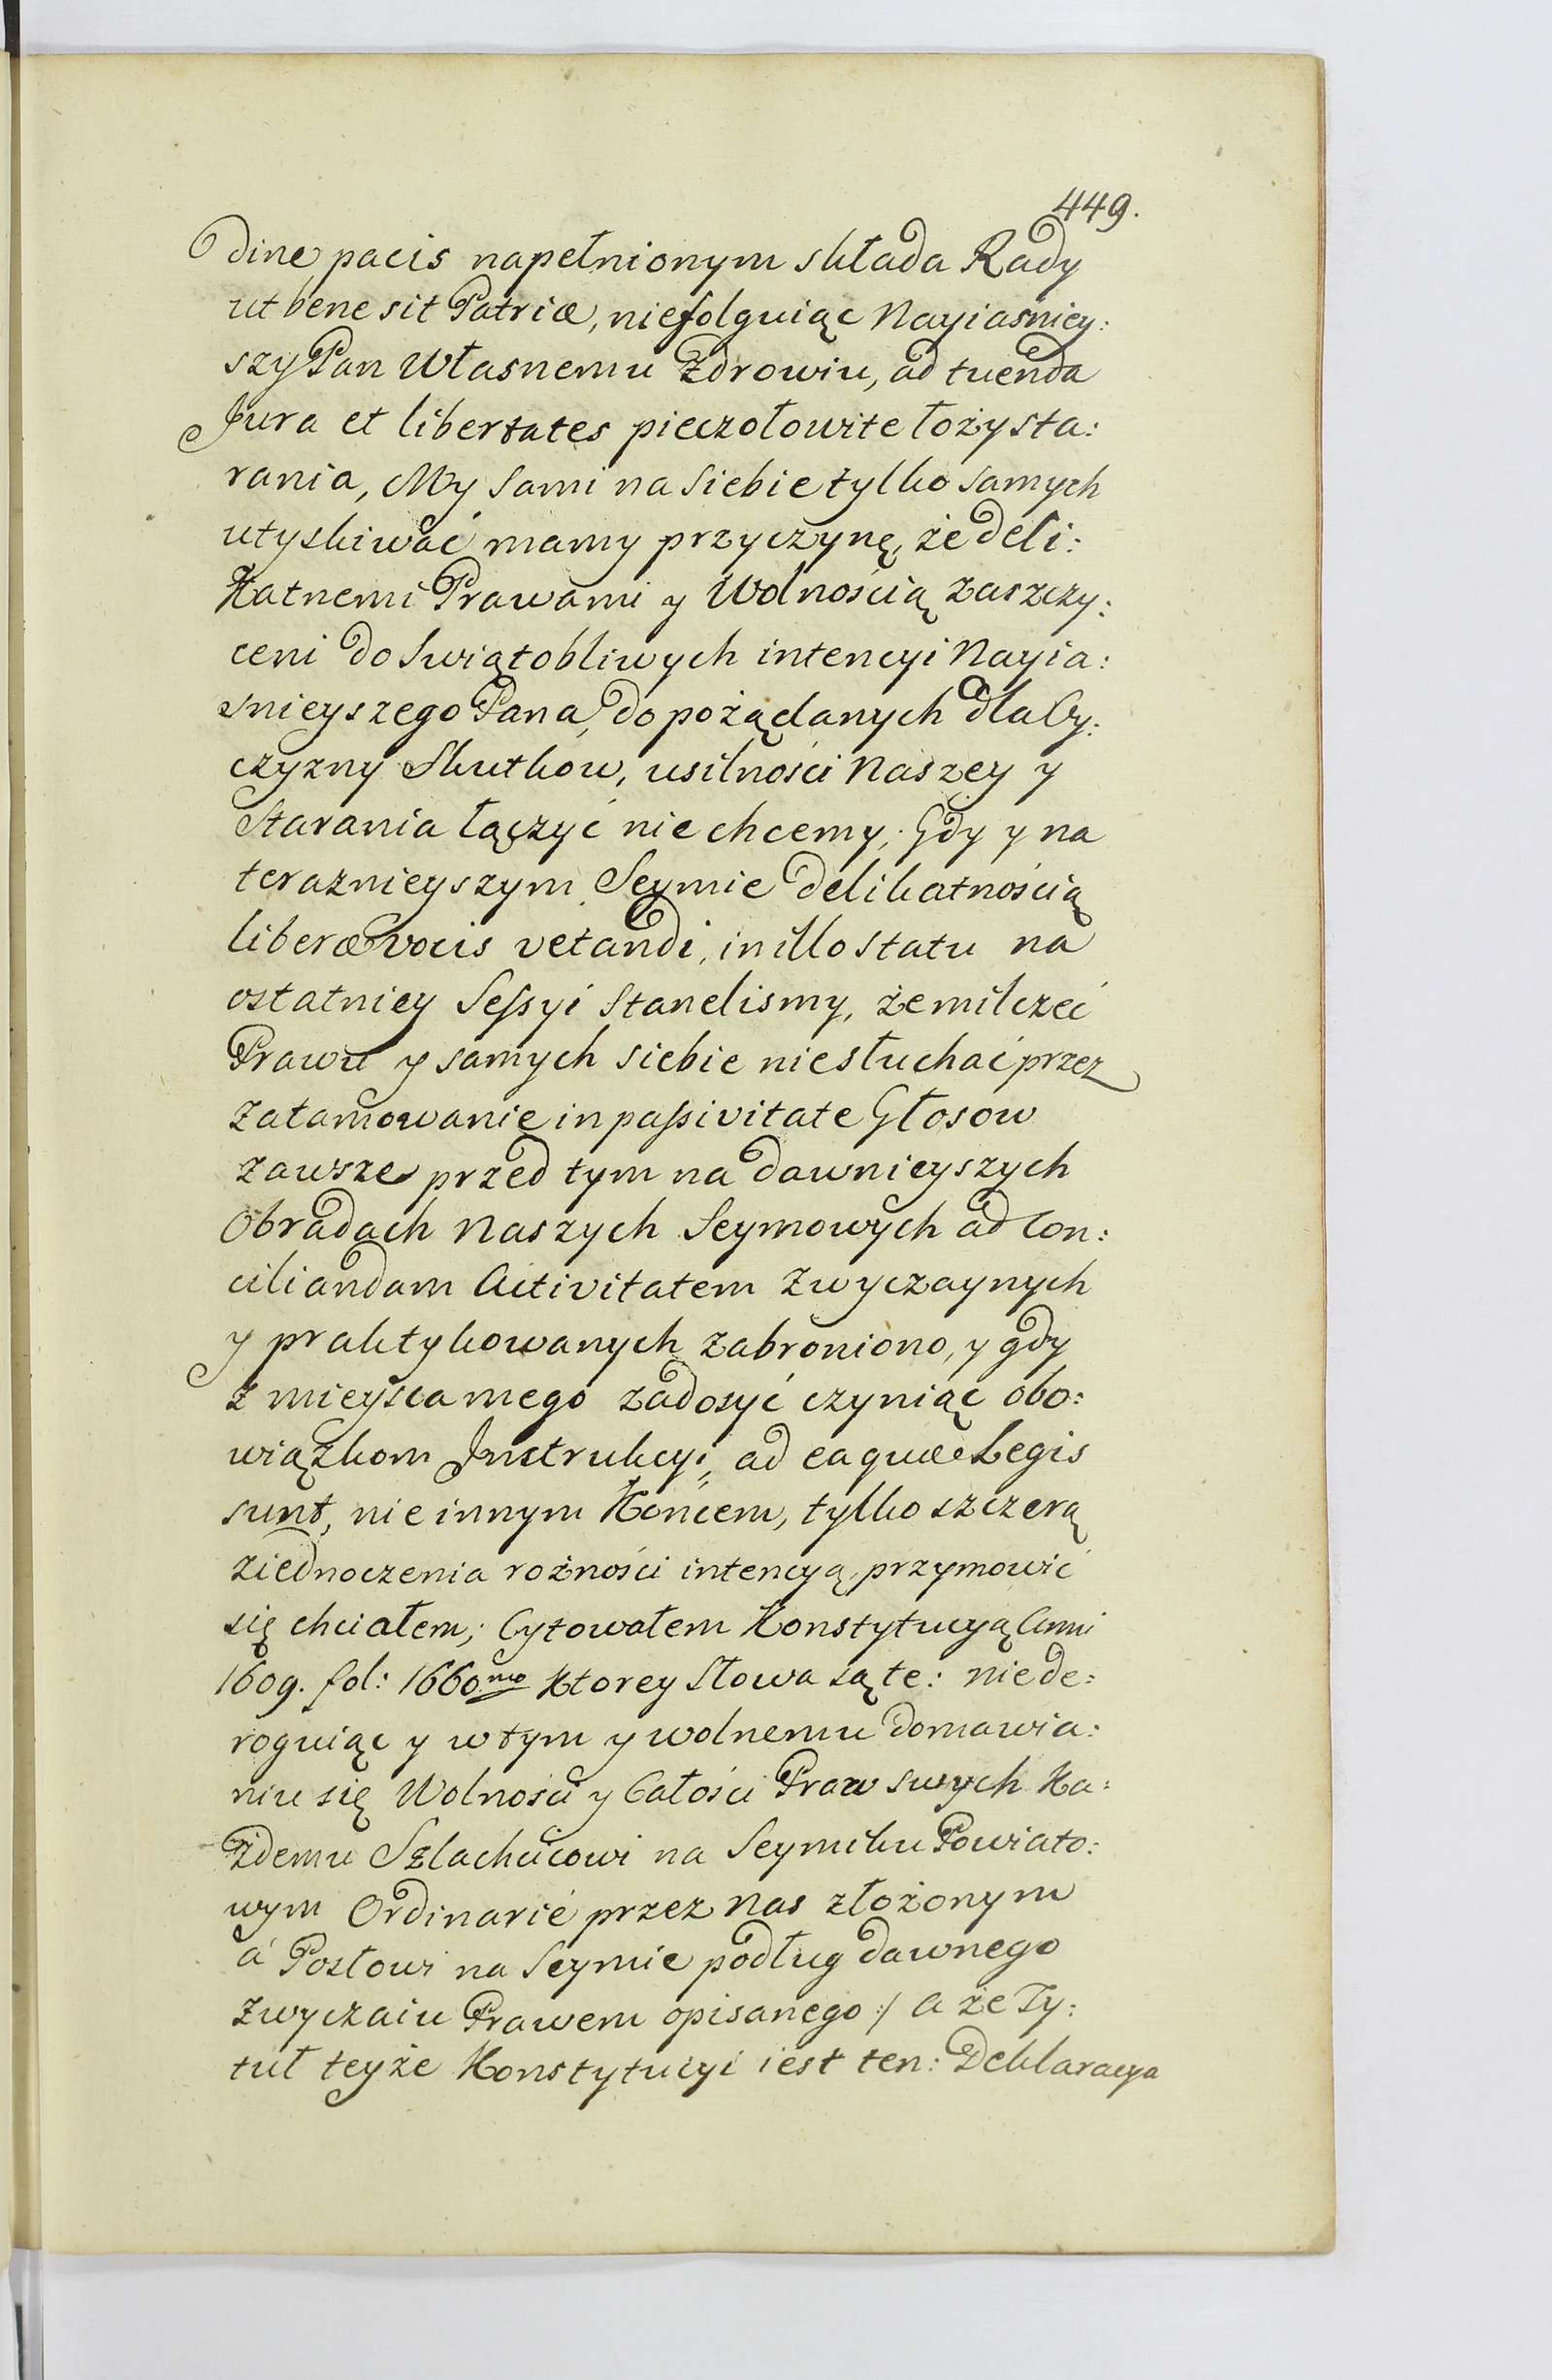 449.
dine pacis napełnionym składa Rady
ut bene sit Patriæ, niefolguiąc Nayiasniey:
szy Pan Własnemu Zdrowiu, ad tuenda
Jura et libertates pieczołowite łoży sta:
rania, My sami na siebie tylko samych
utyskiwać mamy przyczynę, że deli:
Katnemi Prawami y Wolnością zaszczy:
ceni do Swiątobliwych intencyi Nayia:
snieyszego Pana, do pożądanych dla Oy:
czyzny Skutkow, usilności Naszey y
Starania łączyć nie chcemy; Gdy y na
teraznieyszym Seymie delikatnością
liberæ vocis vetandi, in illo statu na
ostatniey Sessyi Stanelismy, że milczeć
Prawu y samych siebie niesłuchać przez
Zatamowanie in passivitate Głosow
Zawsze przed tym na dawnieyszych
Obradach Naszych Seymowych ad Con:
ciliandam Activitatem Zwyczaynych
y praktykowanych zabroniono, y gdy
z mieysca mego zadosyć czyniąc obo:
wiązkom Jnstrukcyi, ad ea quæ Legis
sunt, nie innym Końcem, tylko szczerą
ziednoczenia rożności intencyą, przymowić
się chciałem; Cytowałem Konstytucyą Anni
1609. fol: 1660mo Ktorey Słowa są te: nie de:
roguiąc y w tym y wolnemu domawia:
niu się Wolności y Całości Praw swych Ka:
żdemu Szlachcicowi na Seymiku Powiato:
wym Ordinarié przez Nas złożonym
á Posłowi na Seymie podług dawnego
Zwyczaiu Prawem opisanego :/ A że Ty:
tuł teyże Konstytucyi iest ten: Deklaracya